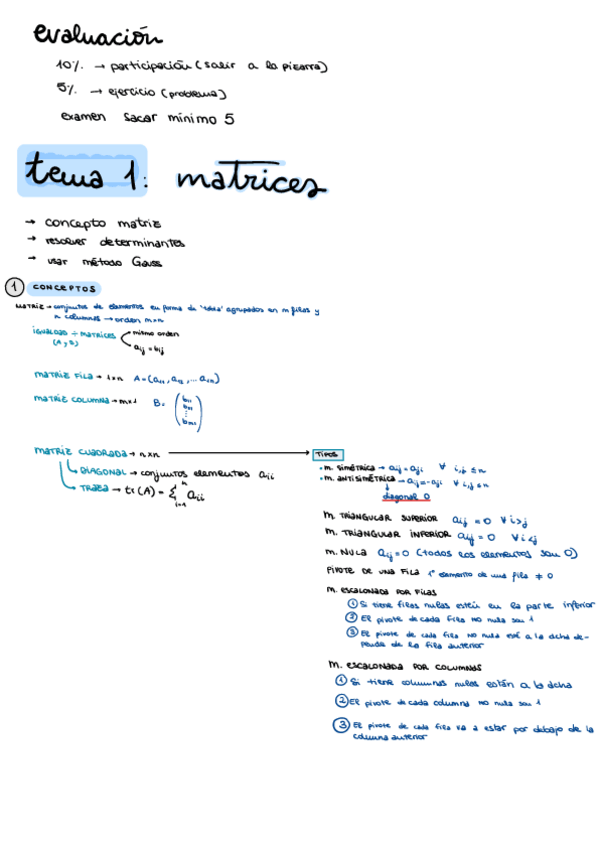 evaluación
10%. → participación (salir a la pizarra)
5%. → ejercicio (problema)
examen sacar mínimo 5
tema 1: matrices
→ concepto matriz
→ resolver determinantes
→ usar método Gauss
1 CONCEPTOS
MATRIZ → conjuntos de elementos en forma de "tabla" agrupados en m filas y
n columnas → orden m×n
IGUALDAD ÷ MATRICES
(A, B)
mismo orden
aij = bij
MATRIZ FILA → 1×n A = (a11, a12, ... a1n)
MATRIZ COLUMNA → m×1 B = (b11 b21 ⋮ b1)
MATRIZ CUADRADA → n×n → TIPOS
DIAGONAL → conjuntos elementos aii
TRAZA → tr(A) = Σ aii
n
i=1
• M. SIMÉTRICA → aij = aji ∀ i,j ≤ n
• M. ANTISIMÉTRICA → aij = -aji ∀ i,j ≤ n
diagonal 0
M. TRIANGULAR SUPERIOR aij = 0 ∀ i>j
M. TRIANGULAR INFERIOR aij = 0 ∀ i<j
M. NULA aij = 0 (todos los elementos son 0)
PIVOTE DE UNA FILA 1º elemento de una fila ≠ 0
M. ESCALONADA POR FILAS
1 Si tiene filas nulas estén en la parte inferior
2 El pivote de cada fila no nula sea 1
3 El pivote de cada fila no nula esté a la dcha de-
pende de la fila anterior
M. ESCALONADA POR COLUMNAS
1 Si tiene columnas nulas están a la dcha
2 El pivote de cada columna no nula sea 1
3 El pivote de cada fila va a estar por debajo de la
columna anterior